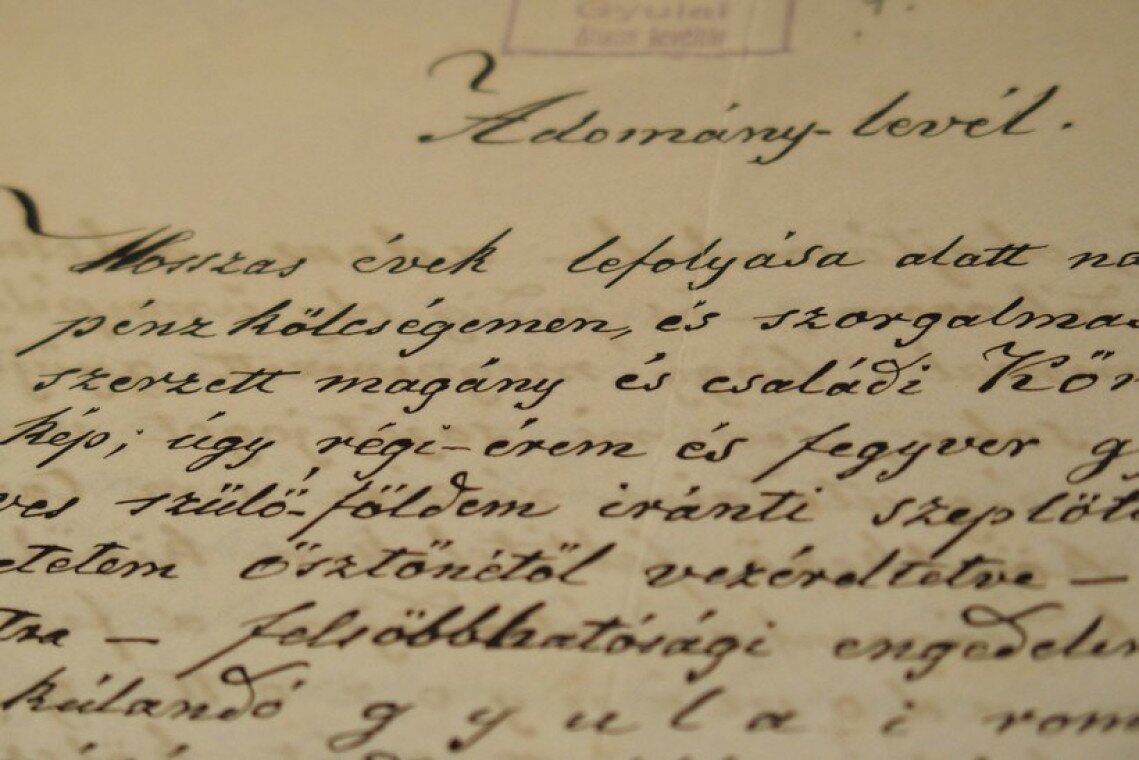 Gyulai
Adomány-levél.
Hosszas évek lefolyása alatt na
pénz költségemen, és szorgalmas
szerzett magány és családi Kön
kép; úgy régi-érem és fegyver gy
ves szülő-földem iránti szeplőt
etetem ösztönétől vezéreltetve —
tra — felsőbbhatósági engedelm
kúlandó gyulai rom